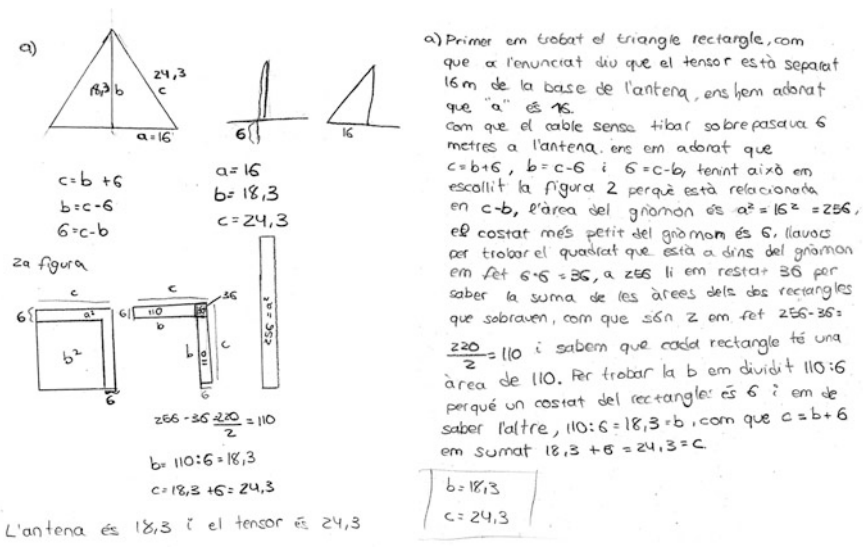 a)
18,3 b
24,3
c
a=16
6
16
c=b+6
b=c-6
6=c-b
a=16
b=18,3
c=24,3
2a figura
c
6
a²
b²
6
c
36
6
110
36
b
b
110
c
6
256=a²
256-36=220/2=110
b=110:6=18,3
c=18,3+6=24,3
L'antena és 18,3 i el tensor és 24,3
a) Primer em trobat el triangle rectangle, com
que a l'enunciat diu que el tensor està separat
16m de la base de l'antena, ens hem adonat
que "a" és 16.
Com que el cable sense tibar sobrepasava 6
metres a l'antena. ens em adonat que
c=b+6, b=c-6 i 6=c-b, tenint això em
escollit la figura 2 perquè està relacionada
en c-b, l'àrea del gnòmon és a²=16²=256,
el costat més petit del gnòmom és 6, llavors
per trobar el quadrat que està a dins del gnòmon
em fet 6·6=36, a 256 li em restat 36 per
saber la suma de les àrees dels dos rectangles
que sobraven, com que són 2 em fet 256-36=
220/2=110 i sabem que cada rectangle té una
àrea de 110. Per trobar la b em dividit 110:6
perqué un costat del rectangle és 6 i em de
saber l'altre, 110:6=18,3=b, com que c=b+6
em sumat 18,3+6=24,3=c.
b=18,3
c=24,3